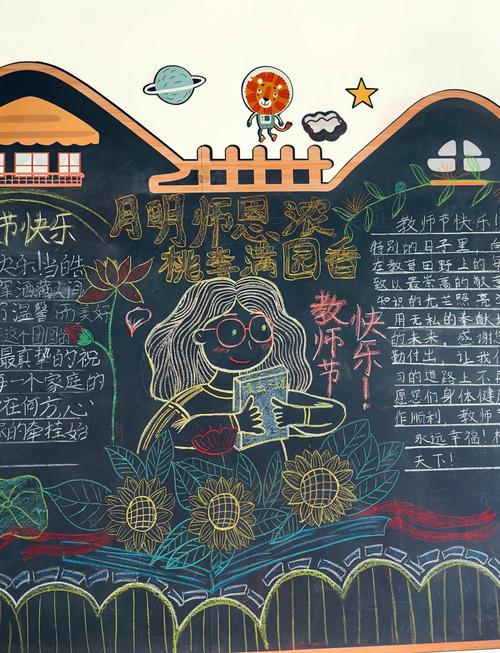 月明师恩浓
桃李满园香
教师节
快乐!
节快乐
快乐!当皓
洒满人间
温馨 美好
这个团圆的
最真挚的祝
每一个家庭的
在何方,心
的牵挂始
教师节快乐
特别的日子里
在教育田野上的
致以最崇高的敬
知识的光芒照亮
用无私的奉献
的未来,感谢您
勤付出,让我
习的道路上不
愿您们身体健
作顺利,教师
永远幸福!
天下!